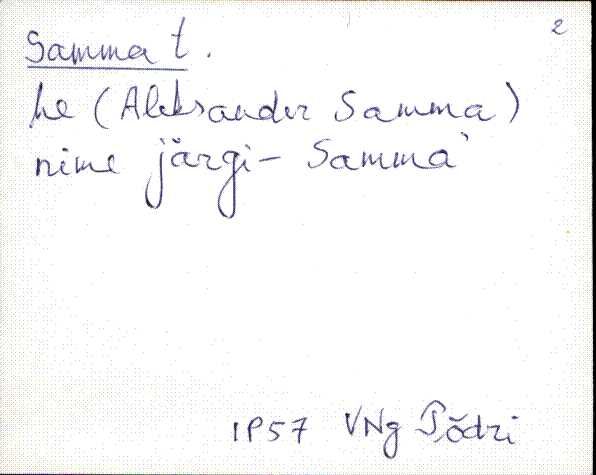 2
Samma t.
he (Aleksander Samma)
nime järgi - Samma`
1957 VNg Põdri